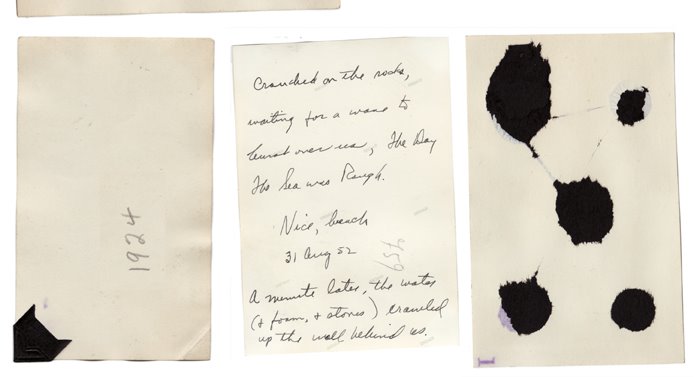 1924
Crouched on the rocks,
waiting for a wave to
burst over us, The Day
The Sea was Rough.
Nice, beach
31 Aug 52
A minute later, the water
(& foam, & stones) crawled
up the wall behind us.